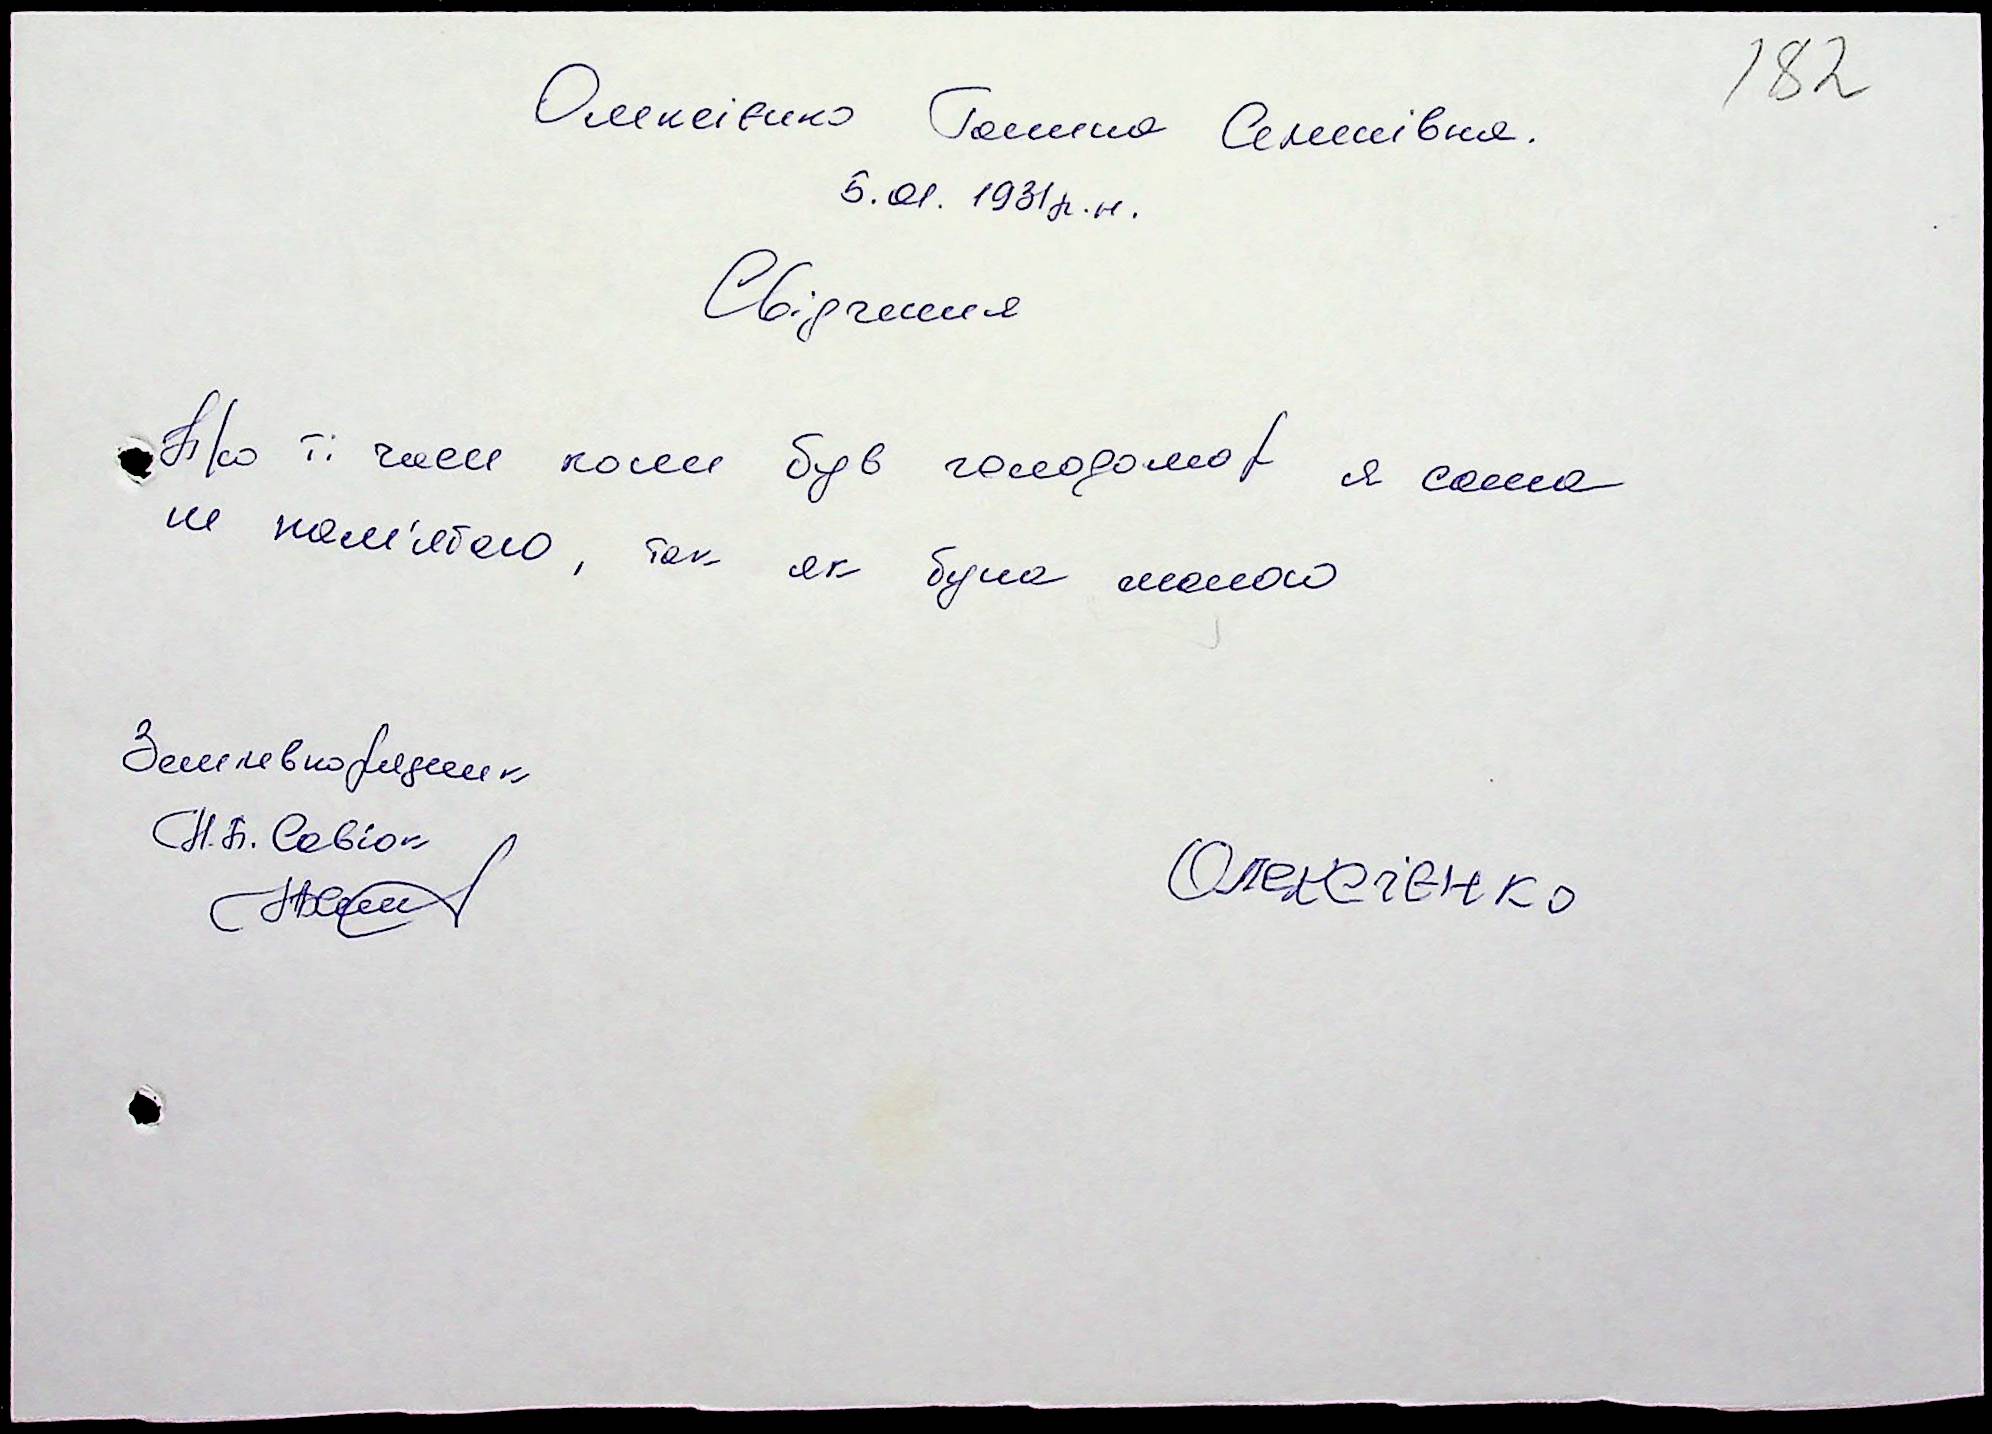 182
Олексієнко Ганна Семенівна.
5.01.1931р.н.
Свідчення
Про ті часи коли був голодомор я сама
не пам'ятаю, так як була малою
Землевпорядник
Н.П. Савіок
Олексієнко